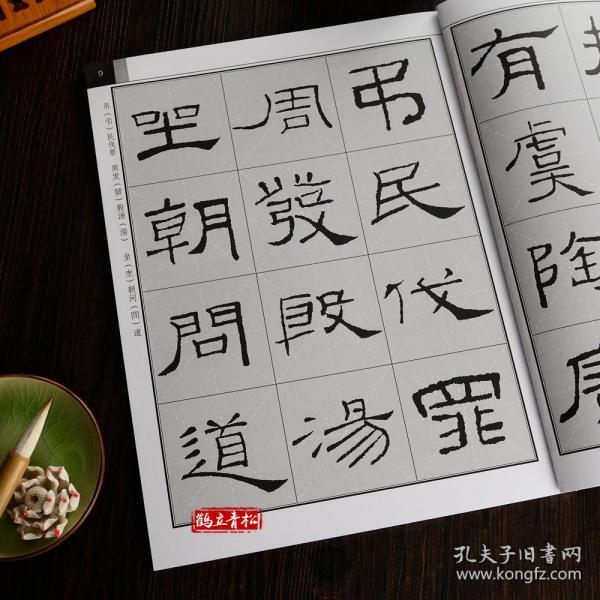 有虞陶
弔民伐罪
周發殷湯
坐朝問道
9
吊（弔）民伐罪 周发（發）殷汤（湯） 坐（㘴）朝问（問）道
鹤立青松
孔夫子旧書网
www.kongfz.com